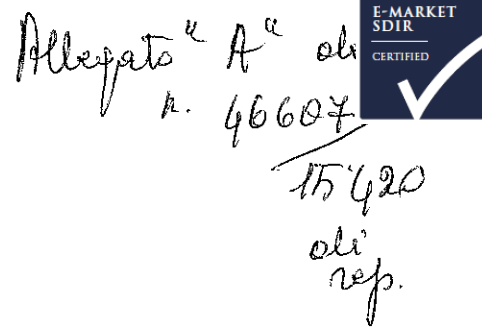 Allegato "A" di
n. 46607
15420
di
rep.
E-MARKET
SDIR
CERTIFIED